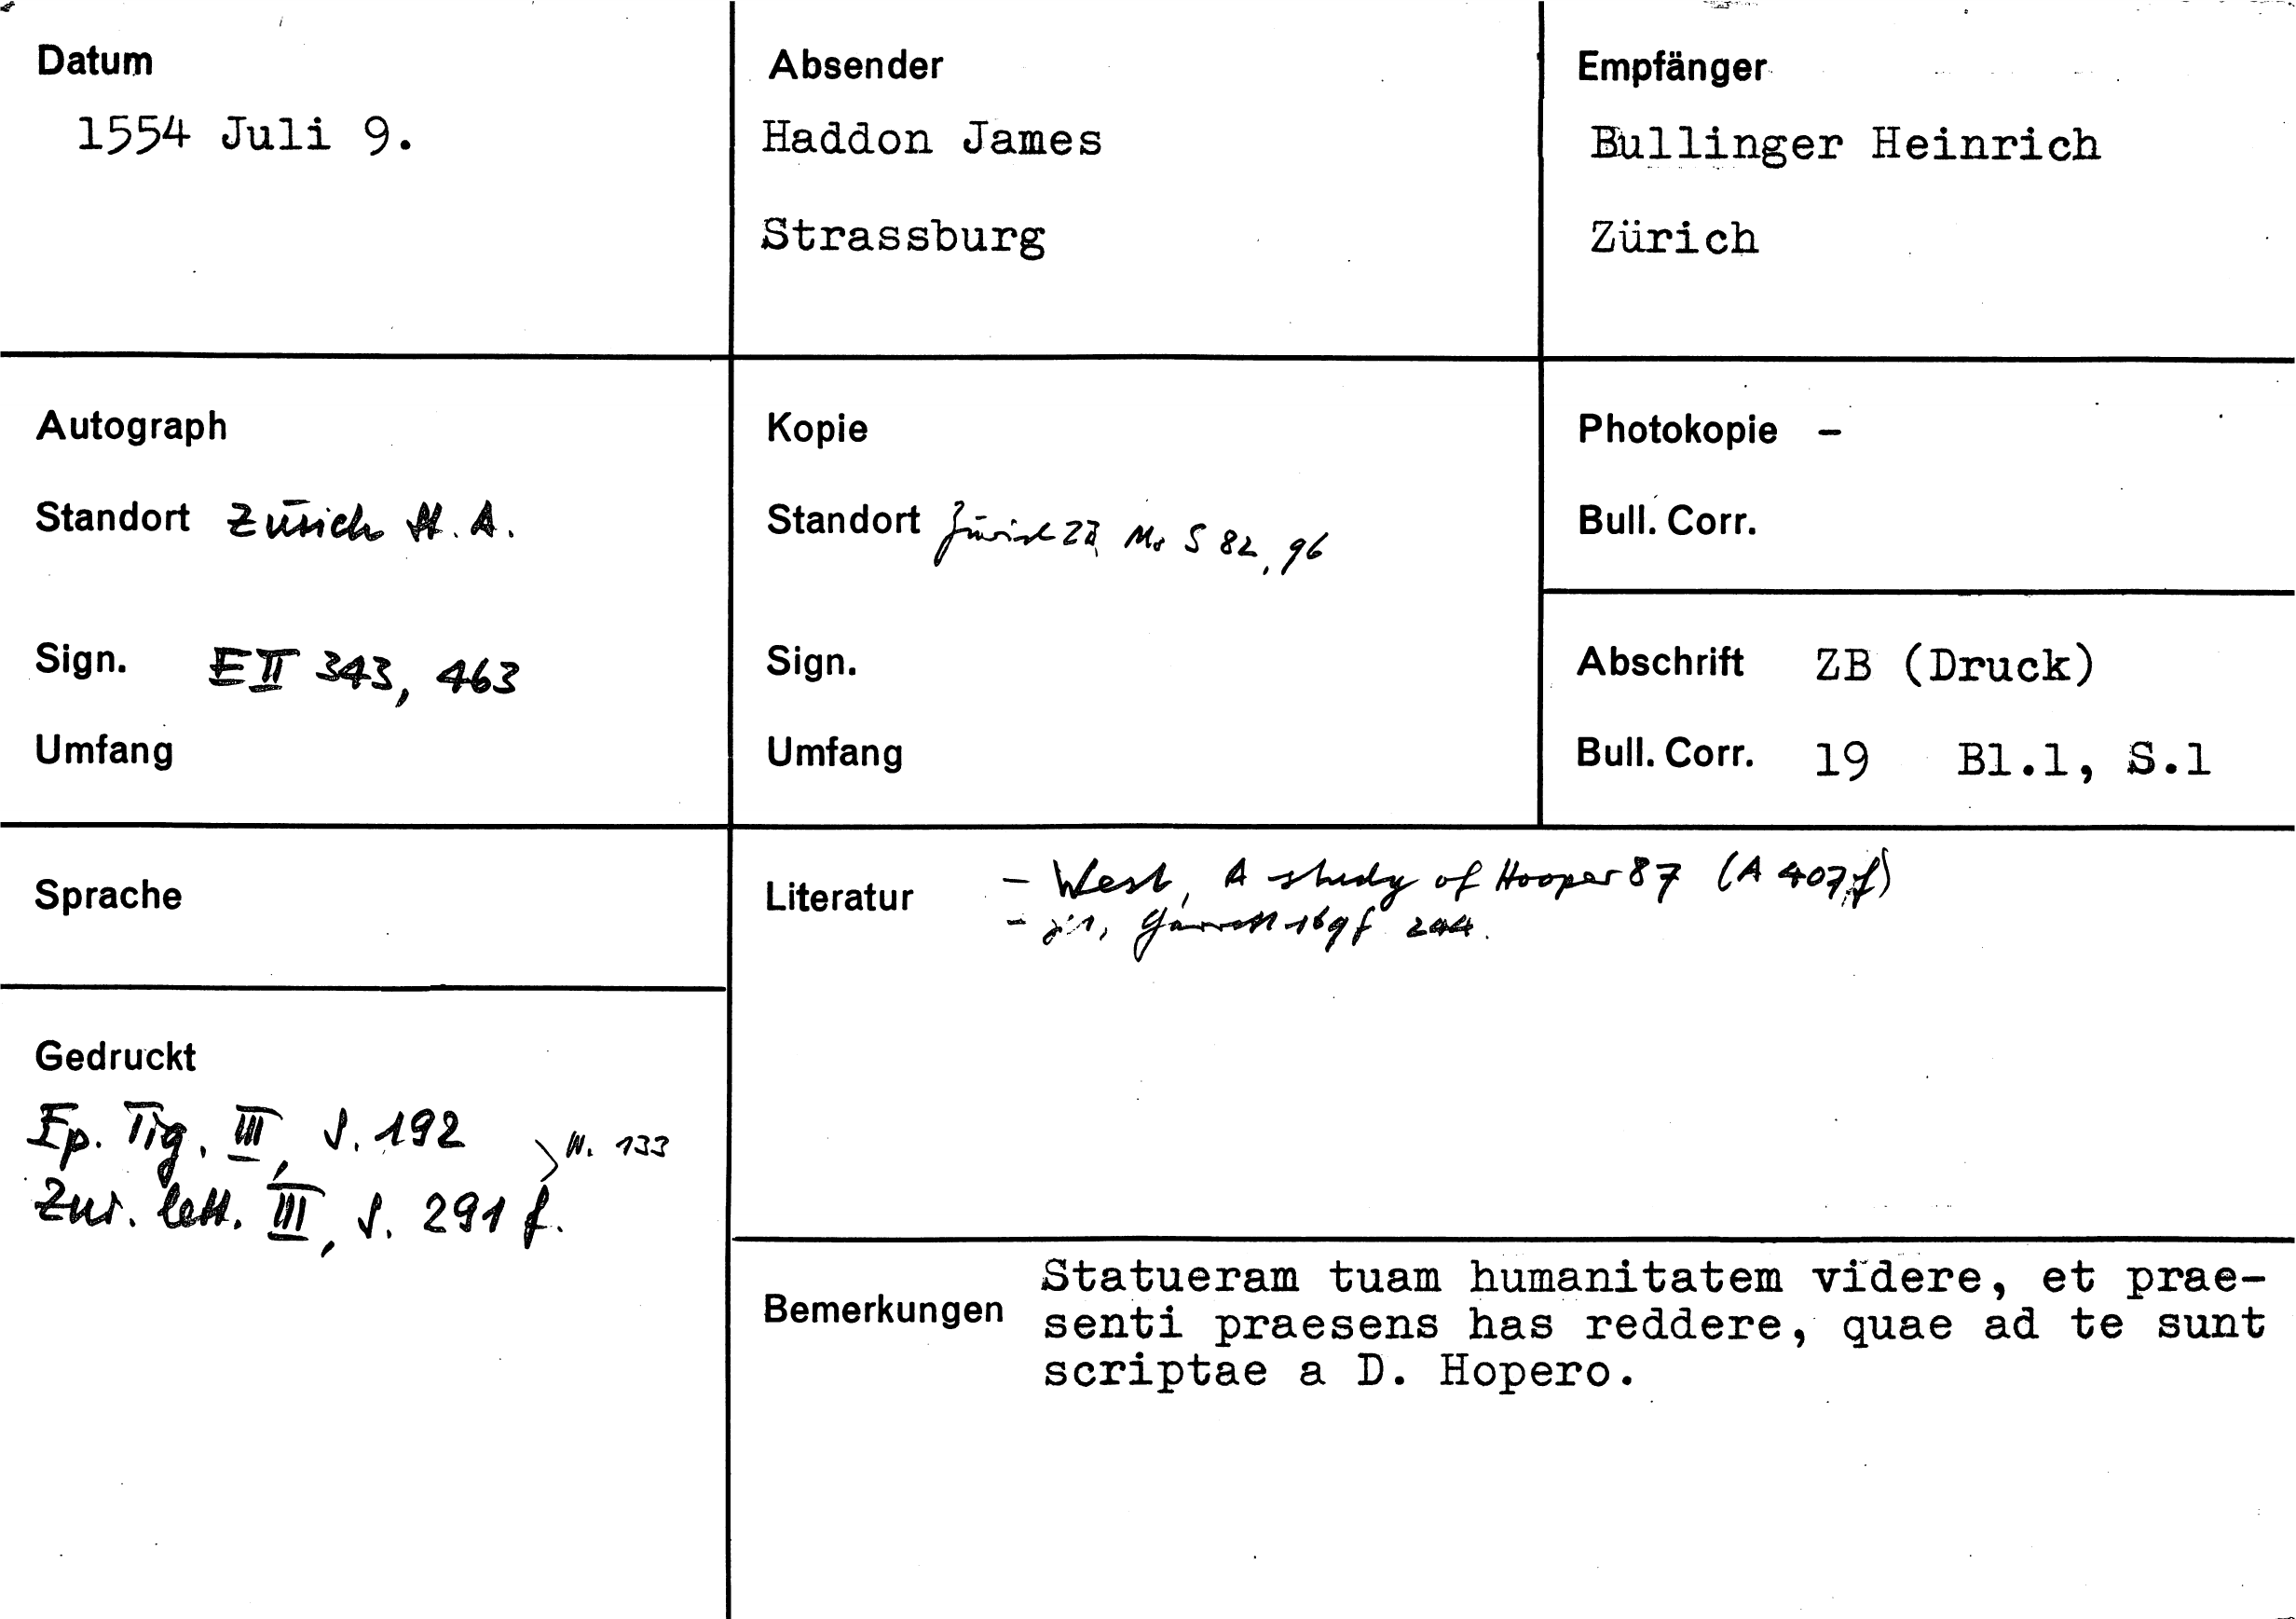 Datum
1554 Juli 9.
Absender
Haddon James
Strassburg
Empfänger
Bullinger Heinrich
Zürich
Autograph
Standort Zürich St. A.
Sign. E II 343, 463
Umfang
Kopie
Standort Zürich ZB, Ms S 82, 96
Sign.
Umfang
Photokopie -
Bull. Corr.
Abschrift ZB (Druck)
Bull. Corr. 19 Bl.1, S.1
Sprache
Literatur - West, A study of Hooper 87 (A 407,f)
- Garrett 169 f 244.
Gedruckt
Ep. Tig. III, S. 192
N. 133
Zur. lett. III, S. 291 f.
Bemerkungen
Statueram tuam humanitatem videre, et prae-
senti praesens has reddere, quae ad te sunt
scriptae a D. Hopero.